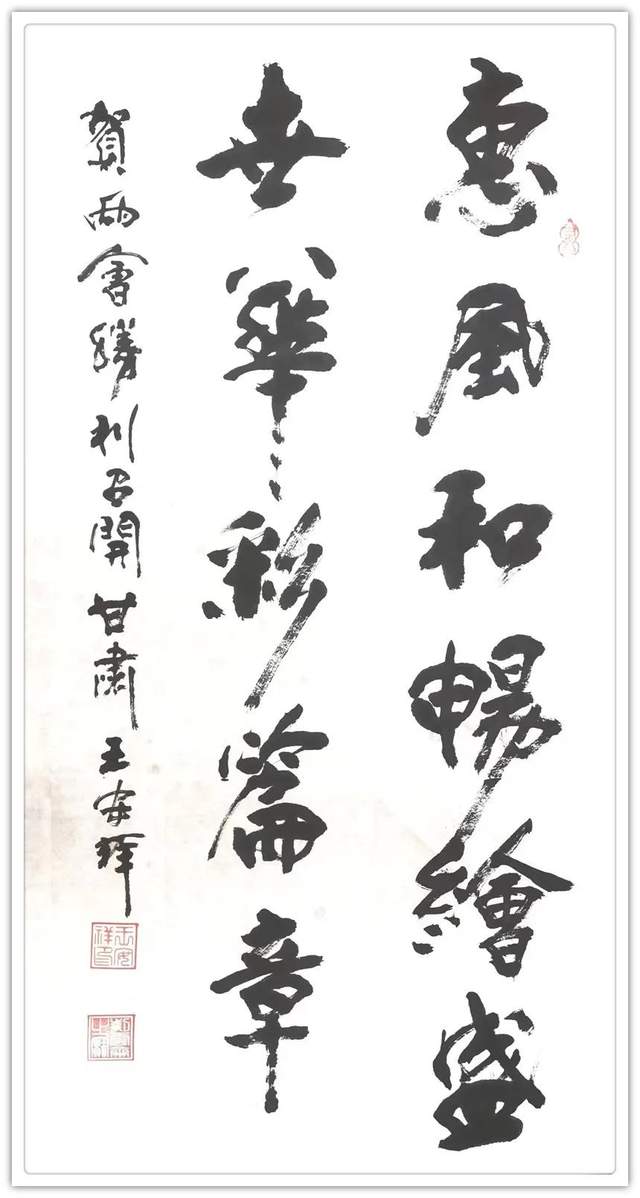 惠風和暢繪盛
世華彩篇章
賀兩會勝利召開甘肅王安祥
王安祥印